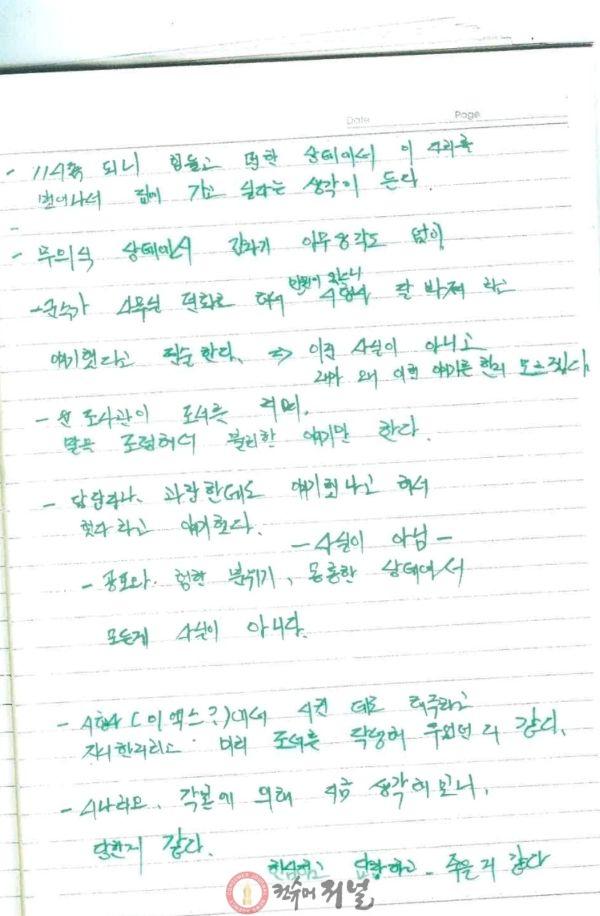 Date Page
- 11시쯤 되니 힘들고 멍한 상태에서 이 자리를
벗어나서 집에 가고 싶다는 생각이 든다.
-
- 무의식 상태에서 갑자기 아무생각도 없이
민원이 있으니
- 사무실 전화로 해서 잘 봐줘 라고
얘기했다고 진술한다. => 이건 사실이 아니고
내가 왜 이런 얘기를 한지 모르겠다.
- 조사관이 조서를
말을 조합해서 불리한 얘기만 한다.
- 담당과나, 과장한테도 얘기했냐고 해서
했다라고 얘기했다.
- 사실이 아님 -
- 공포와 험한 분위기, 몽롱한 상태에서
모든게 사실이 아니다.
- (이엑스?)에서 사건 해주라고
지시한거라고 미리 조서를 작성해 두었던거 같다.
- 시나리오, 각본에 의해 지금 생각해보니,
당한거 같다.
한심하고 답답하고 - 죽을거 같다
컨슈머저널